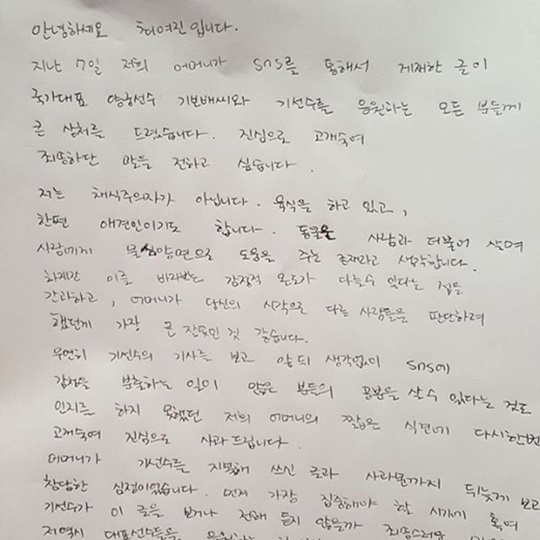 안녕하세요 최여진입니다.
지난 7일 저희 어머니가 SNS를 통해서 게재한 글이
국가대표 양궁선수 기보배씨와 기선수를 응원하는 모든 분들께
큰 상처를 드렸습니다. 진심으로 고개숙여
죄송하단 말을 전하고 싶습니다.
저는 채식주의자가 아닙니다. 육식을 하고 있고,
한편 애견인이기도 합니다. 동물은 사람과 더불어 살며
사람에게 물심양면으로 도움을 주는 존재라고 생각합니다.
하지만 이를 바라보는 감정적 온도가 다를수 있다는 점을
간과하고, 어머니가 당신의 시각으로 다른 사람들을 판단하려
했던게 가장 큰 잘못인 것 같습니다.
우연히 기선수의 기사를 보고 앞뒤 생각없이 SNS에
감정을 분출하는 일이 많은 분들의 공분을 살 수 있다는 것도
인지를 하지 못했던 저희 어머니의 짧은 식견에 다시한번
고개숙여 진심으로 사과드립니다.
어머니가 기선수를 지목해 쓰신 글과 사과문까지 뒤늦게 보고
참담한 심정이었습니다. 먼저 가장 집중해야 할 시기에 혹여
기선수가 이 글을 보거나 전해 듣지 않을까 죄송스러운
저역시 대표선수들을 응원하는